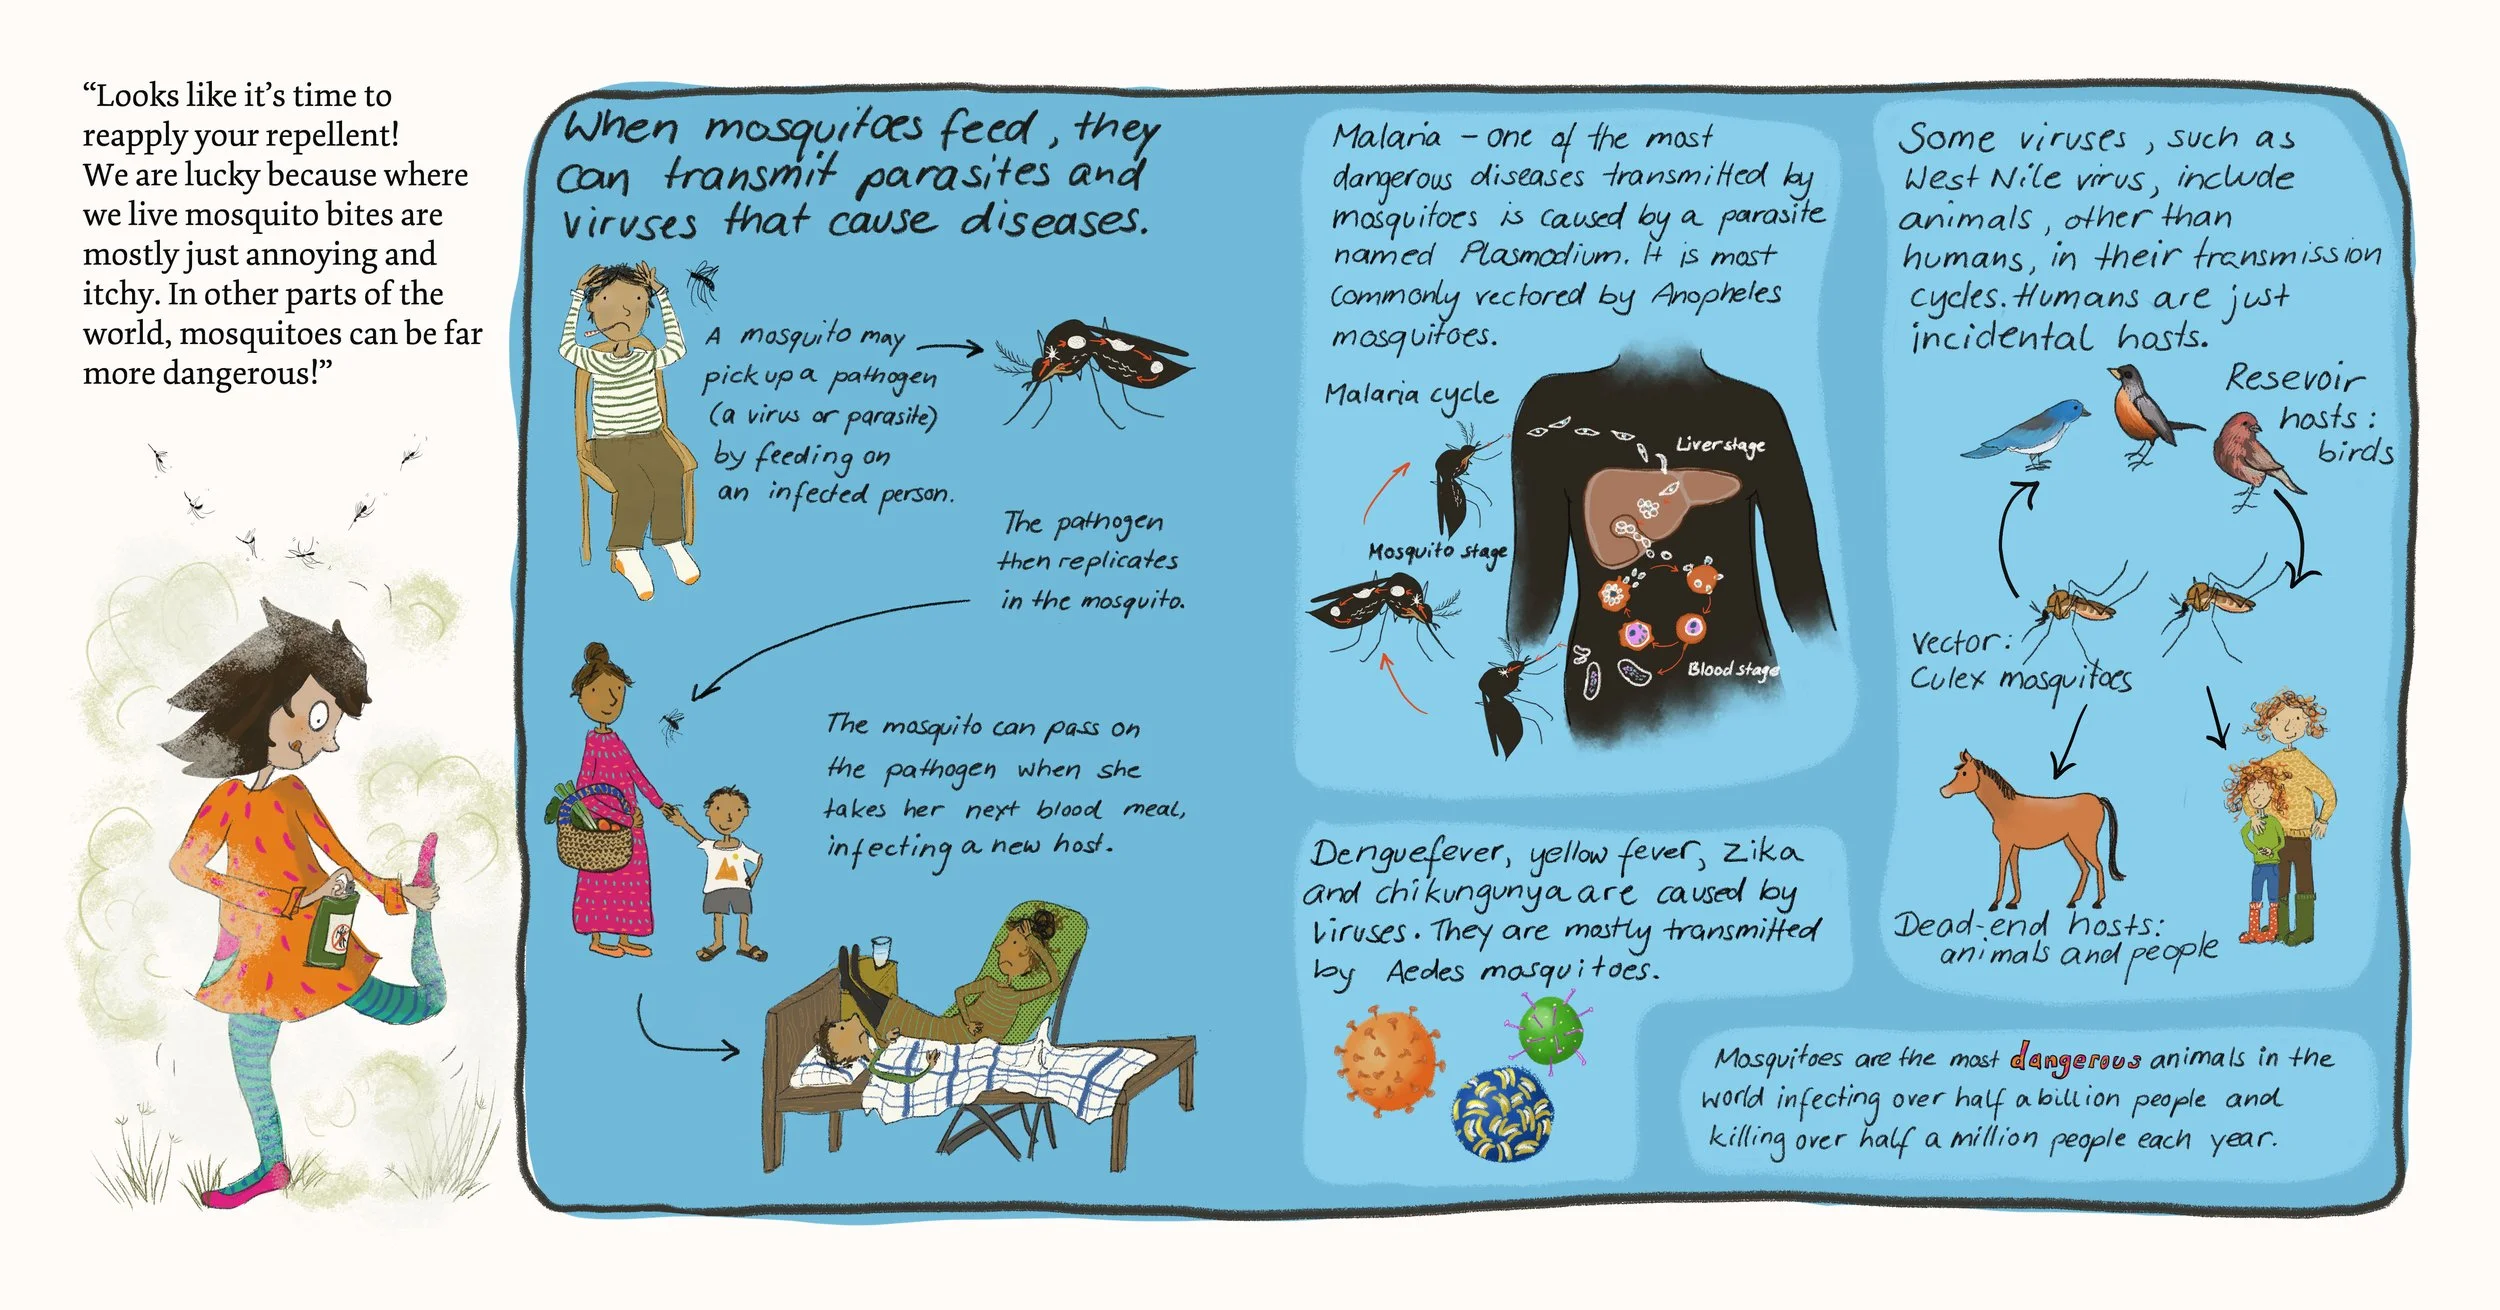 “Looks like it’s time to
reapply your repellent!
We are lucky because where
we live mosquito bites are
mostly just annoying and
itchy. In other parts of the
world, mosquitoes can be far
more dangerous!”
When mosquitoes feed, they
can transmit parasites and
viruses that cause diseases.
A mosquito may
pick up a pathogen
(a virus or parasite)
by feeding on
an infected person.
The pathogen
then replicates
in the mosquito.
The mosquito can pass on
the pathogen when she
takes her next blood meal,
infecting a new host.
Malaria – one of the most
dangerous diseases transmitted by
mosquitoes is caused by a parasite
named Plasmodium. It is most
commonly vectored by Anopheles
mosquitoes.
Malaria cycle
Liver stage
Mosquito stage
Blood stage
Denguefever, yellow fever, Zika
and chikungunya are caused by
viruses. They are mostly transmitted
by Aedes mosquitoes.
Some viruses, such as
West Nile virus, include
animals, other than
humans, in their transmission
cycles. Humans are just
incidental hosts.
Resevoir
hosts:
birds
Vector:
Culex mosquitoes
Dead-end hosts:
animals and people
Mosquitoes are the most dangerous animals in the
world infecting over half a billion people and
killing over half a million people each year.